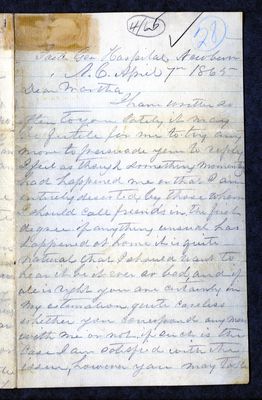 (4/65)
20
Post Gen Hospital, Newbern
N.C. April 7th 1865
Dear Martha
I have written so
often to you lately it may
be futile for me to try any
more to persuade you to reply
I feel as though something momentous
had happened me or that I am
entirely deserted by those whom
I should call friends in the first
degree if anything unusual has
happened at home it is quite
natural that I should want to
hear it be it ever so bad, and if
all is right you are certainly in
my estimation quite careless
whether you correspond any more
with me or not, if such is the
case I am satisfied with the
issue, however you may